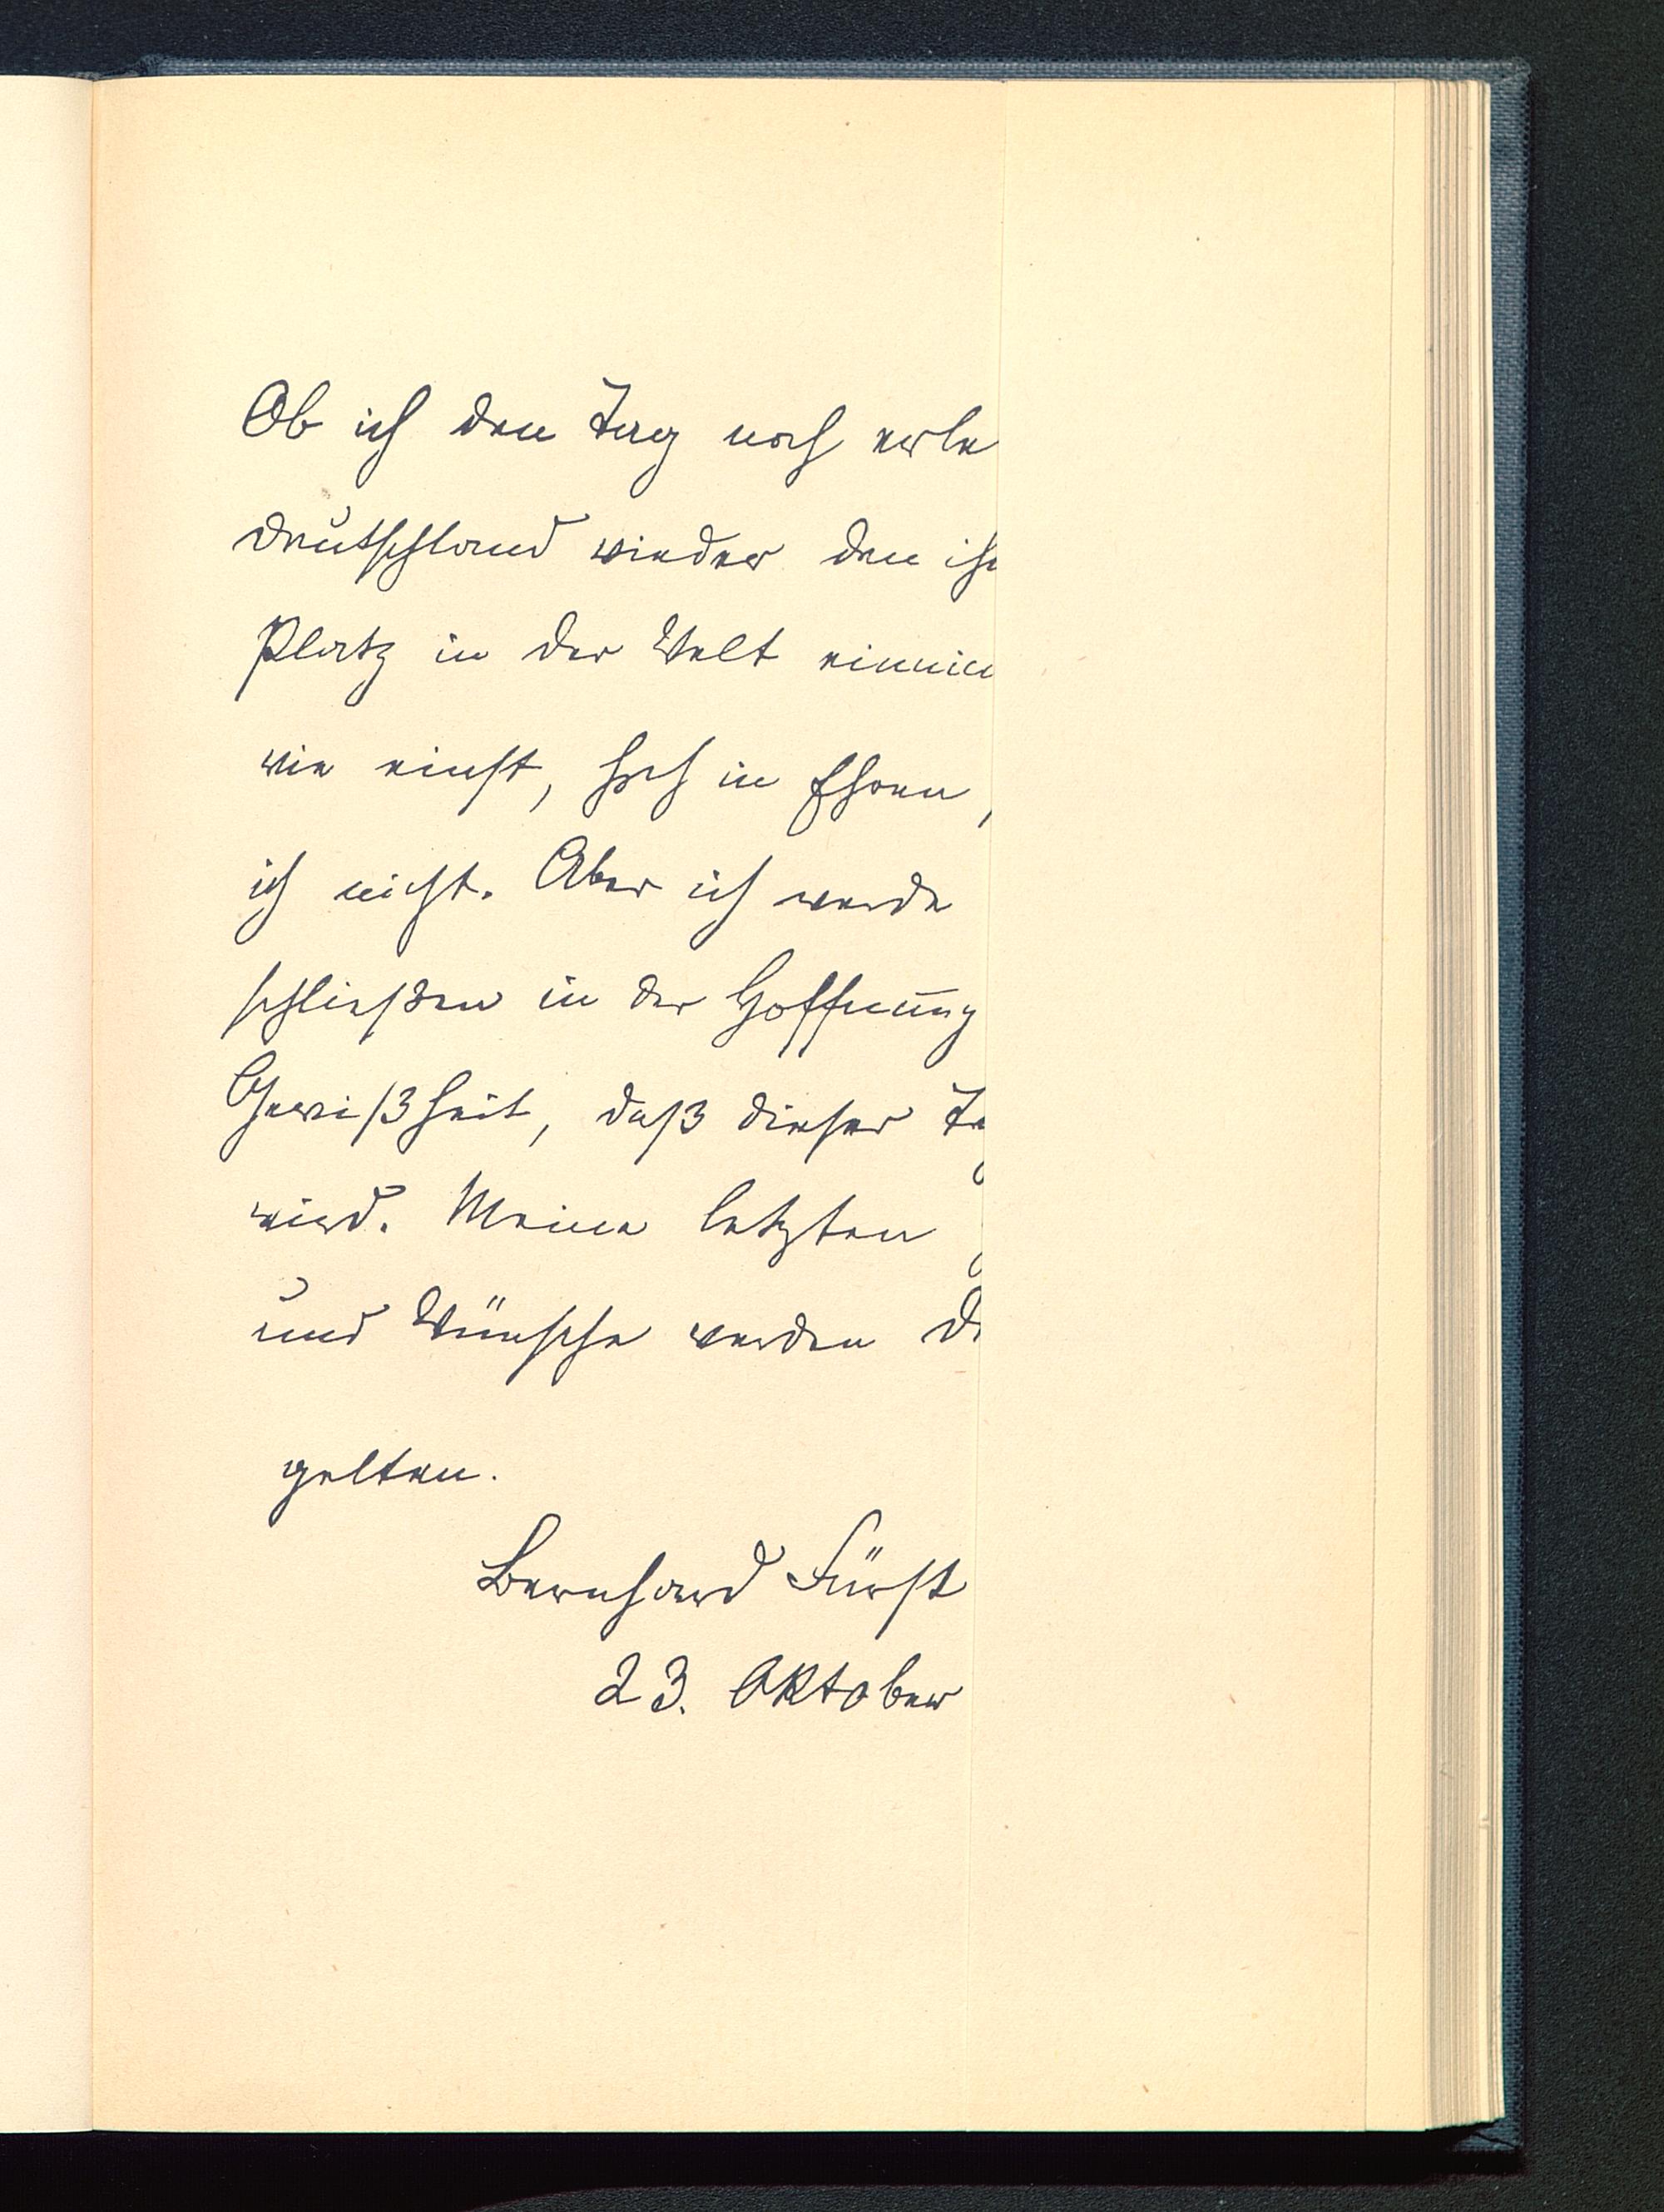 Ob ich den Tag noch erle
Deutschland wieder den ih
Platz in der Welt einnim
wie einst, hoch in Ehren,
ich nicht. Aber ich werde
schließen in der Hoffnung
Gewißheit, daß dieser Ta
wird. Meine letzten
und Wünsche werden D
gelten.
Bernhard Fürst
23. Oktober